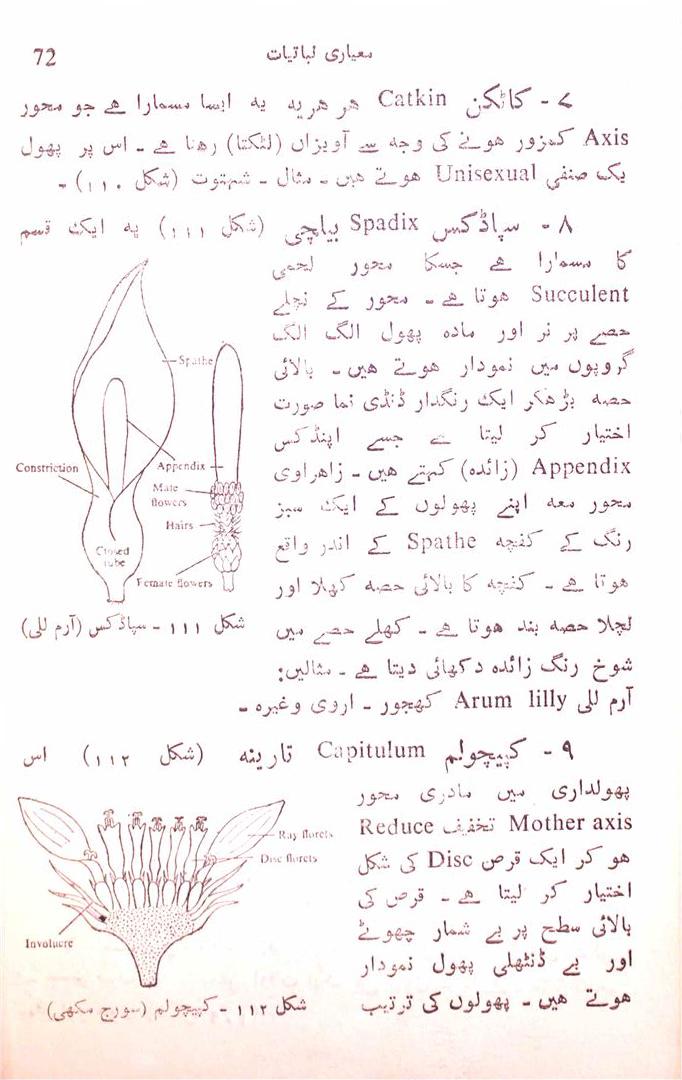 72
معیاری نباتیات
۷ - کاٹکن Catkin هر هریه یه ایسا مسمارا هے جو محور
Axis کمزور هونے کی وجه سے آویزاں (لٹکتا) رهتا هے - اس پر پھول
یک صنفی Unisexual هوتے هیں - مثال - شہتوت (شکل ۱۱۰) -
۸ - سپاڈکس Spadix بیلچی (شکل ۱۱۱) یه ایک قسم
کا مسمارا هے جسکا محور لحمی
Succulent هوتا هے - محور کے نچلے
حصے پر نر اور ماده پھول الگ الگ
گروپوں میں نمودار هوتے هیں - بالائی
حصه بڑھکر ایک رنگدار ڈنڈی نما صورت
اختیار کر لیتا هے جسے اپنڈکس
Appendix (زائده) کہتے هیں - زهراوی
محور معه اپنے پھولوں کے ایک سبز
رنگ کے کفچه Spathe کے اندر واقع
هوتا هے - کفچه کا بالائی حصه کھلا اور
نچلا حصه بند هوتا هے - کھلے حصے میں
شوخ رنگ زائده دکھائی دیتا هے - مثالیں:
آرم للی Arum lilly کھجور - اروی وغیره -
Spathe
Constriction
Appendix
Male
flowers
Hairs
Closed
tube
Female flowers
شکل ۱۱۱ - سپاڈکس (آرم للی)
۹ - کیپچولم Capitulum تارینه (شکل ۱۱۲) اس
پھولداری میں مادری محور
Mother axis تخفیف Reduce
هو کر ایک قرص Disc کی شکل
اختیار کر لیتا هے - قرص کی
بالائی سطح پر بے شمار چھوٹے
اور بے ڈنٹھلی پھول نمودار
هوتے هیں - پھولوں کی ترتیب
Ray florets
Disc florets
Involucre
شکل ۱۱۲ - کیپچولم (سورج مکھی)